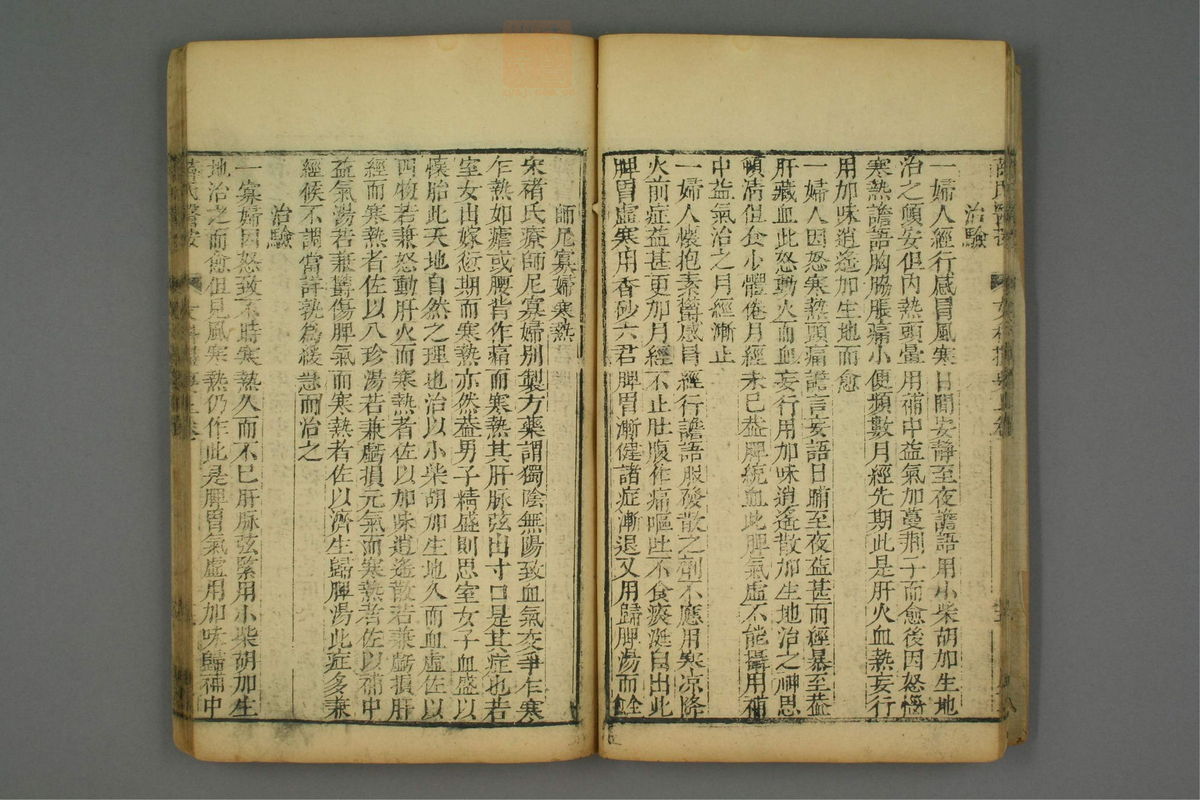 治驗
一婦人經行感冒風寒日間安靜至夜譫語用小柴胡加生地
治之頓安但內熱頭暈用補中益氣加蔓荊子而愈後因怒惱
寒熱譫語胸脇脹痛小便頻數月經先期此是肝火血熱妄行
用加味逍遙加生地而愈
一婦人因怒寒熱頭痛譫言妄語日晡至夜益甚而經暴至蓋
肝藏血此怒動火而血妄行用加味逍遙散加生地治之神思
頓清但食少體倦月經未已蓋脾統血此脾氣虛不能攝用補
中益氣治之月經漸止
一婦人懷抱素鬱感冒經行譫語服發散之劑不應用寒凉降
火前症益甚更加月經不止肚腹作痛嘔吐不食痰涎自出此
脾胃虛寒用香砂六君脾胃漸健諸症漸退又用歸脾湯而全
師尼寡婦寒熱
宋褚氏療師尼寡婦別製方藥謂獨陰無陽致血氣交爭乍寒
乍熱如瘧或腰背作痛而寒熱其肝脉弦出寸口是其症也若
室女出嫁愆期而寒熱亦然蓋男子精盛則思室女子血盛以
懷胎此天地自然之理也治以小柴胡加生地久而血虛佐以
四物若兼怒動肝火而寒熱者佐以加味逍遙散若兼虧損肝
經而寒熱者佐以八珍湯若兼虧損元氣而寒熱者佐以補中
益氣湯若兼鬱傷脾氣而寒熱者佐以濟生歸脾湯此症多兼
經候不調當詳孰為緩急而治之
治驗
一寡婦因怒致不時寒熱久而不已肝脉弦緊用小柴胡加生
地治之而愈但見風寒熱仍作此是脾胃氣虛用加味歸補中
薛氏醫案